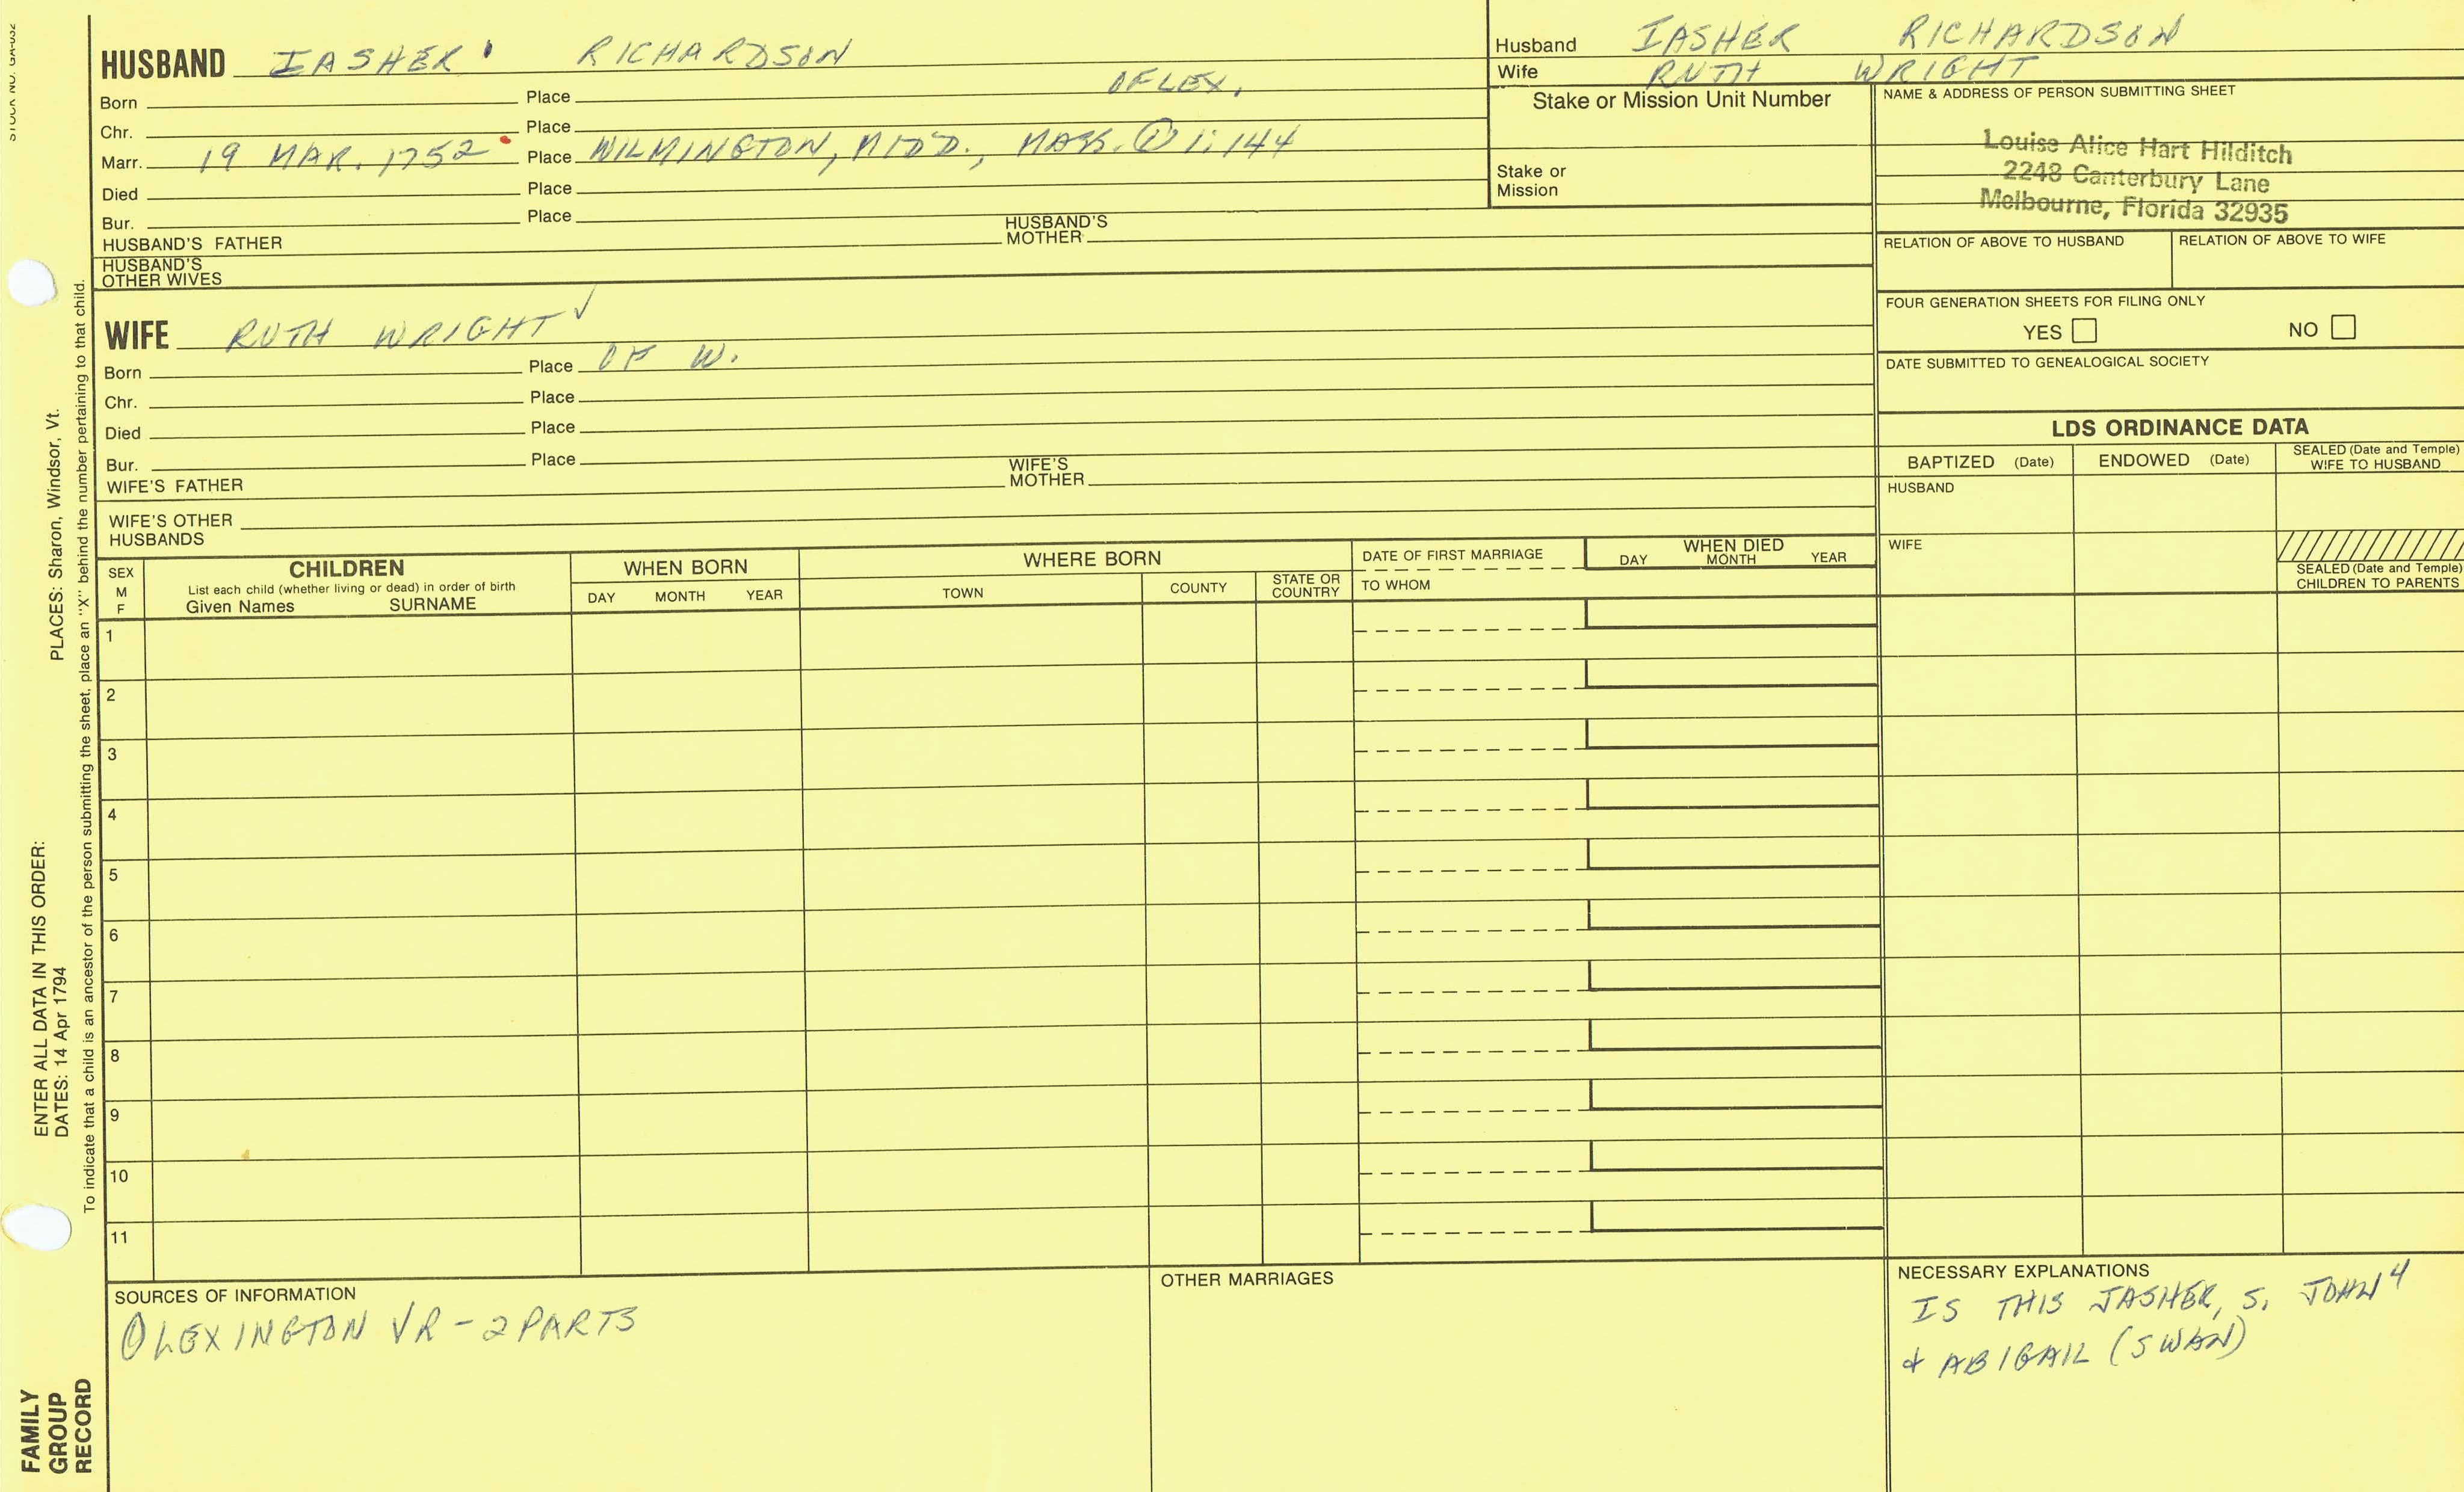 HUSBAND IASHER' RICHARDSON
OF LEX.
Born Place
Chr. Place
Marr. 19 MAR. 1752 Place WILMINGTON, MIDD., MASS. ① 1:144
Died Place
Bur. Place
HUSBAND'S FATHER HUSBAND'S MOTHER
HUSBAND'S OTHER WIVES
Husband IASHER RICHARDSON
Wife RUTH WRIGHT
Stake or Mission Unit Number
Stake or Mission
NAME & ADDRESS OF PERSON SUBMITTING SHEET
Louise Alice Hart Hilditch
2248 Canterbury Lane
Melbourne, Florida 32935
RELATION OF ABOVE TO HUSBAND RELATION OF ABOVE TO WIFE
FOUR GENERATION SHEETS FOR FILING ONLY
YES NO
DATE SUBMITTED TO GENEALOGICAL SOCIETY
WIFE RUTH WRIGHT ✓
Born Place OF W.
Chr. Place
Died Place
Bur. Place
WIFE'S FATHER WIFE'S MOTHER
WIFE'S OTHER HUSBANDS
LDS ORDINANCE DATA
BAPTIZED (Date) ENDOWED (Date) SEALED (Date and Temple) WIFE TO HUSBAND
HUSBAND
WIFE
SEALED (Date and Temple) CHILDREN TO PARENTS
SEX M F
CHILDREN
List each child (whether living or dead) in order of birth
Given Names SURNAME
WHEN BORN
DAY MONTH YEAR
WHERE BORN
TOWN COUNTY STATE OR COUNTRY
DATE OF FIRST MARRIAGE
TO WHOM
WHEN DIED
DAY MONTH YEAR
1
2
3
4
5
6
7
8
9
10
11
SOURCES OF INFORMATION
① LEXINGTON VR - 2 PARTS
OTHER MARRIAGES
NECESSARY EXPLANATIONS
IS THIS JASHER, S. JOHN⁴
+ ABIGAIL (SWAN)
STOCK NO. GA-032
PLACES: Sharon, Windsor, Vt.
ENTER ALL DATA IN THIS ORDER:
DATES: 14 Apr 1794
To indicate that a child is an ancestor of the person submitting the sheet, place an "X" behind the number pertaining to that child.
FAMILY
GROUP
RECORD